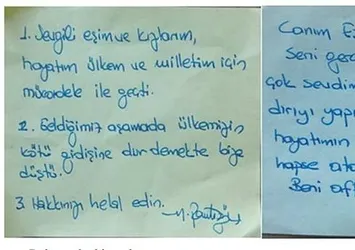 1. Sevgili eşim ve kızlarım,
hayatım ülkem ve milletim için
mücadele ile geçti.
2. Geldiğimiz aşamada ülkemizin
kötü gidişine dur demekte bize
düştü.
3. Hakkınızı helal edin.
Canım E
Seni ger
çok sevdim
diriyi yapı
hayatımın
hapse ata
Beni af